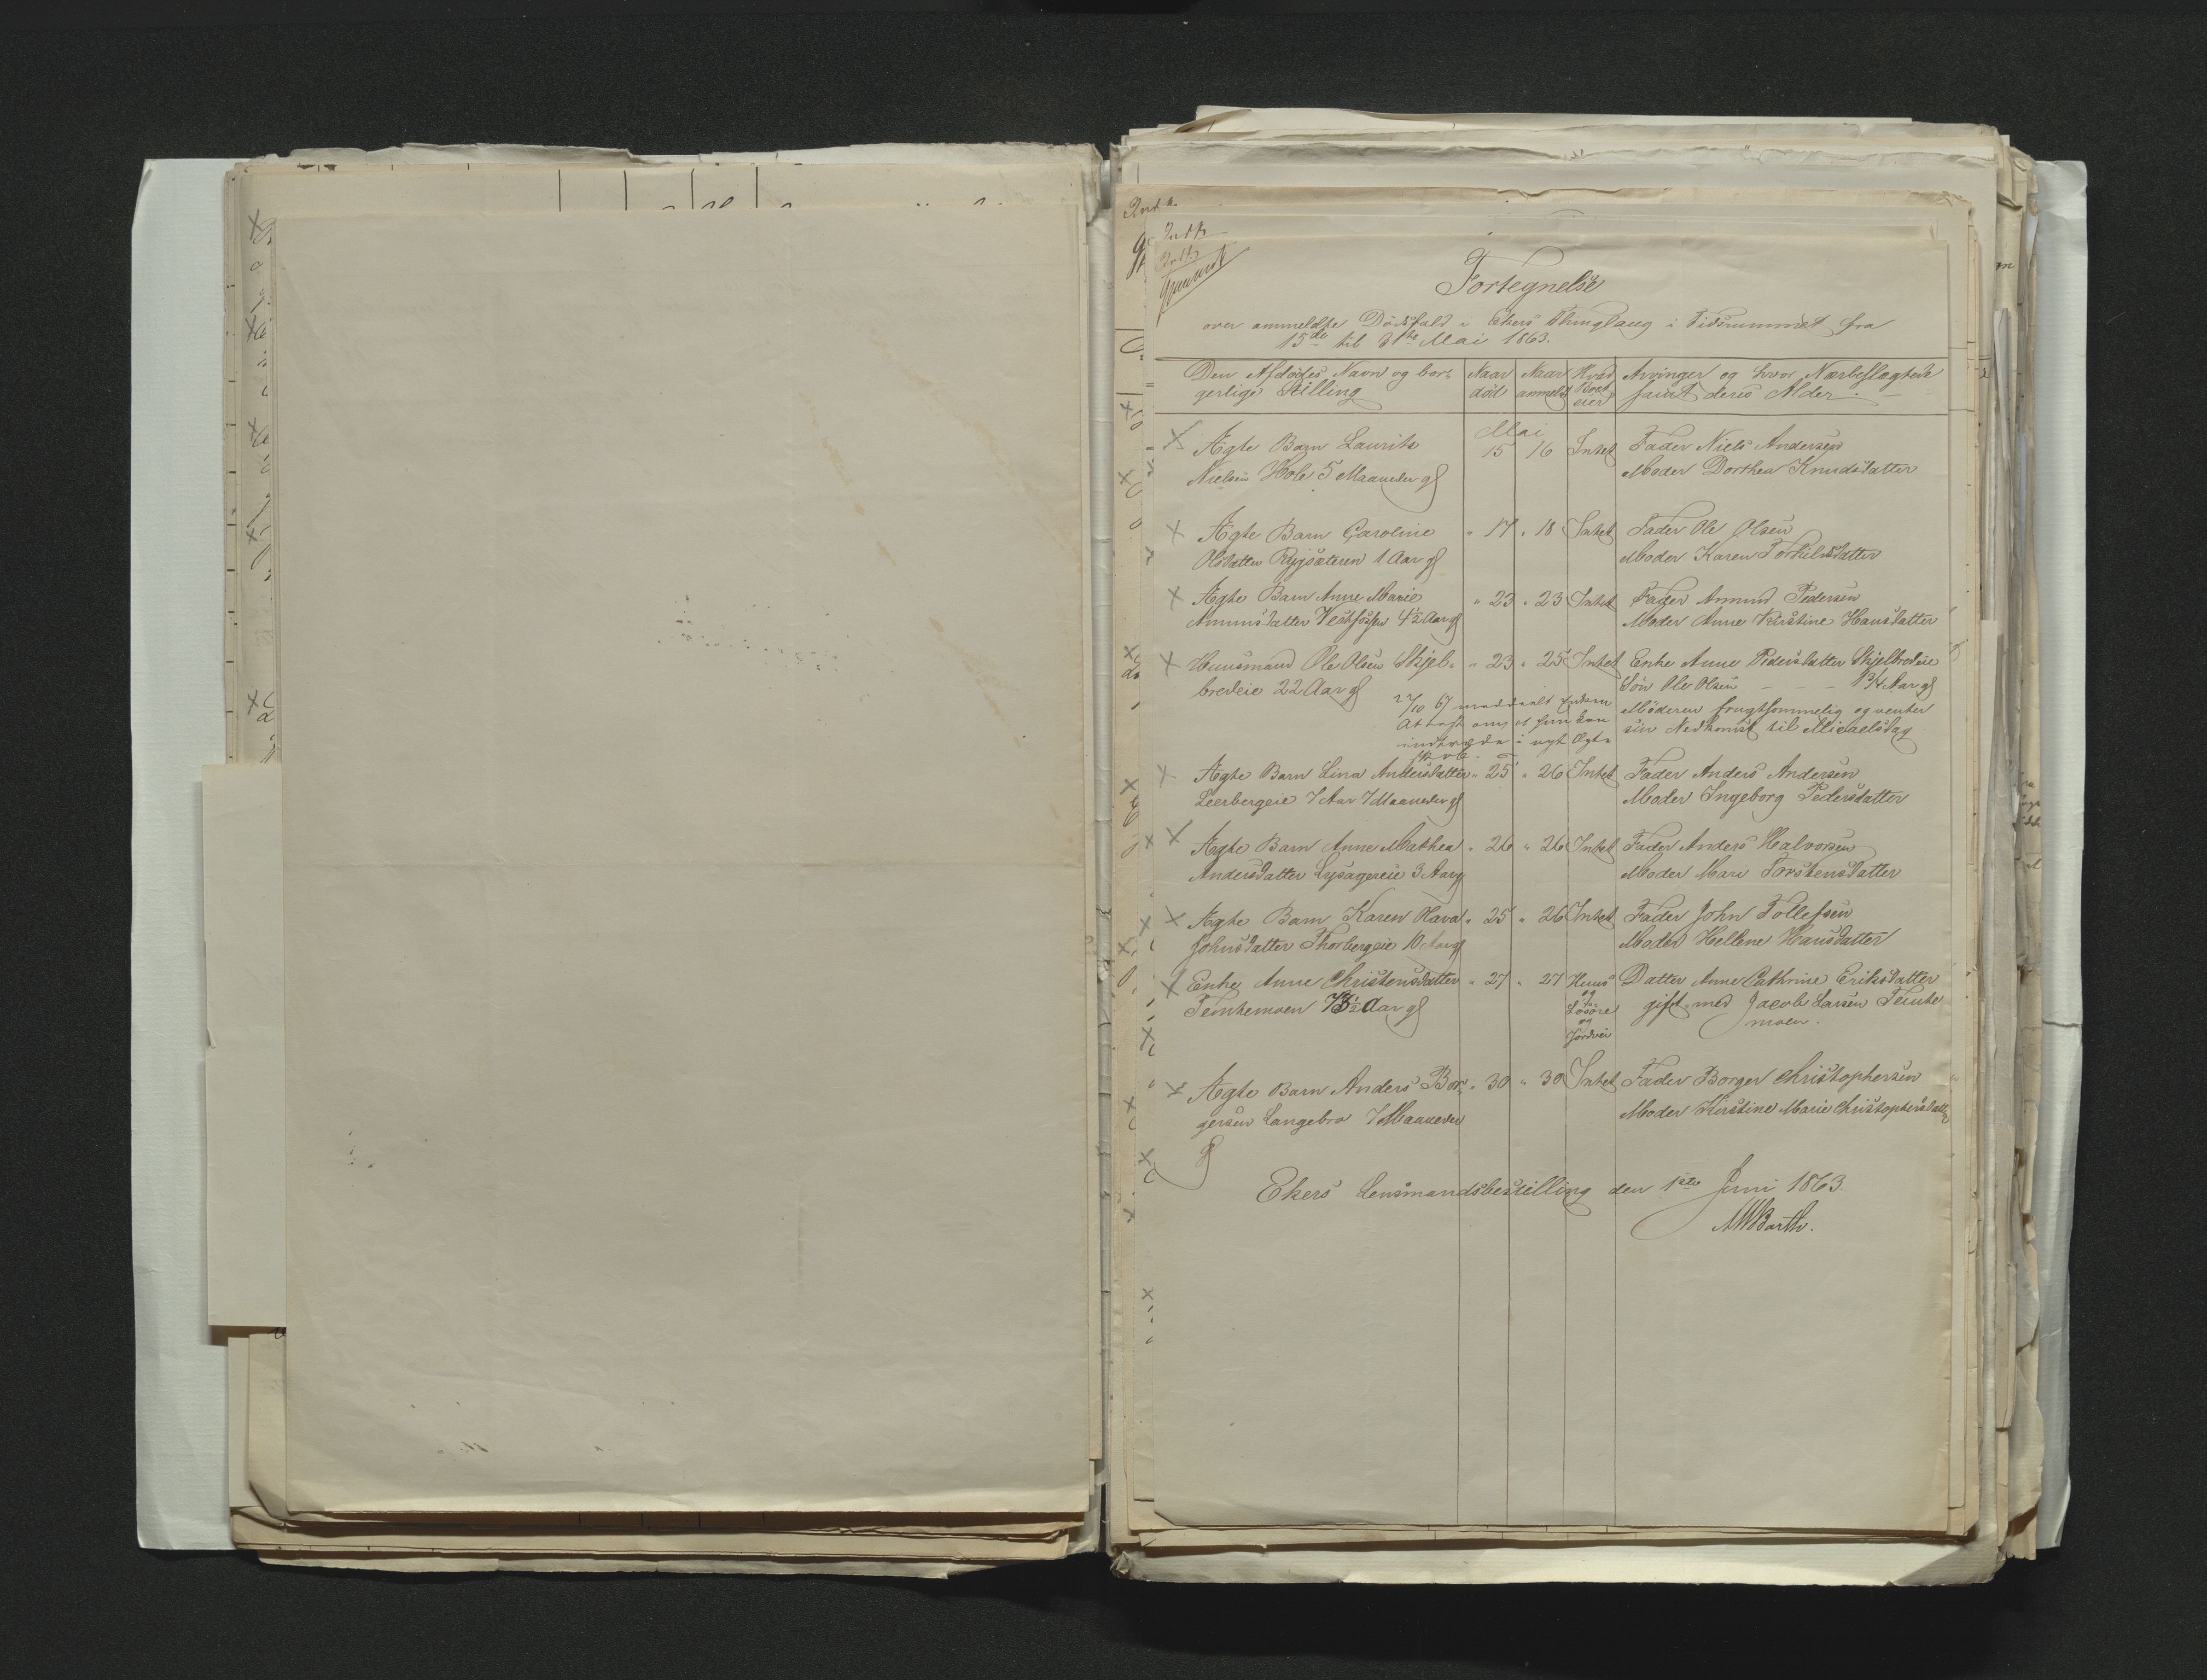 Fortegnelse
over anmeldte Dödsfald i Ekers Thinglaug i Tidsrummet fra
15de til 31te Mai 1863.
Den Afdödes Navn og bor- Naar Naar Hvad Arvinger og hvor Nærbeslægtede
gerlige Stilling död anmeldt Boet eier samt deres Alder.
Mai
Ægte Barn Laurits 15 16 Intet Fader Niels Andersen
Nielsen Hole 5 Maaneder gl Moder Dorthea Knudsdatter
Ægte Barn Caroline " 17 " 18 Intet Fader Ole Olsen
Olsdatter 1 Aar gl Moder Karen Torkildsdatter
Ægte Barn Anne Marie " 23 " 23 Intet Fader Amund Pedersen
Amunsdatter Vestfossen 4½ Aar gl Moder Anne Kirstine Hansdatter
Huusmand Ole Olsen Skjel- " 23 " 25 Intet Enke Anne Pedersdatter Skjelbredeie
bredeie 22 Aar gl Sön Ole Olsen - - - 1 3/4 Aar gl
27/10 67 meddeelt Enken Moderen frugtsommelig og venter
Attest om at hun kan sin Nedkomst til Michaelsdag
indtræde i nyt Ægte
skab.
Ægte Barn Lina Andersdatter " 25 " 26 Intet Fader Anders Andersen
Leerbergeie 7 Aar 7 Maaneder gl Moder Ingeborg Pedersdatter
Ægte Barn Anne Mathea " 26 " 26 Intet Fader Anders Halvorsen
Andersdatter Lysagereie 3 Aar gl Moder Mari Torstensdatter
Ægte Barn Karen Olava " 25 " 26 Intet Fader John Tollefsen
Johnsdatter Thorbergeie 10 Aar gl Moder Hellene Hansdatter
Enke Anne Christensdatter " 27 " 27 Huus Datter Anne Cathrine Eriksdatter
Temtemoen 73½ Aar gl og Lösöre gift med Jacob Larsen Temte
og moen.
Ægte Barn Anders Bor- " 30 " 30 Intet Fader Borger Christophersen
gersen Langebro 7 Maaneder Moder Kirstine Marie Christophersdatter
gl
Ekers Lensmandsbestilling den 1ste Juni 1863.
Barth.